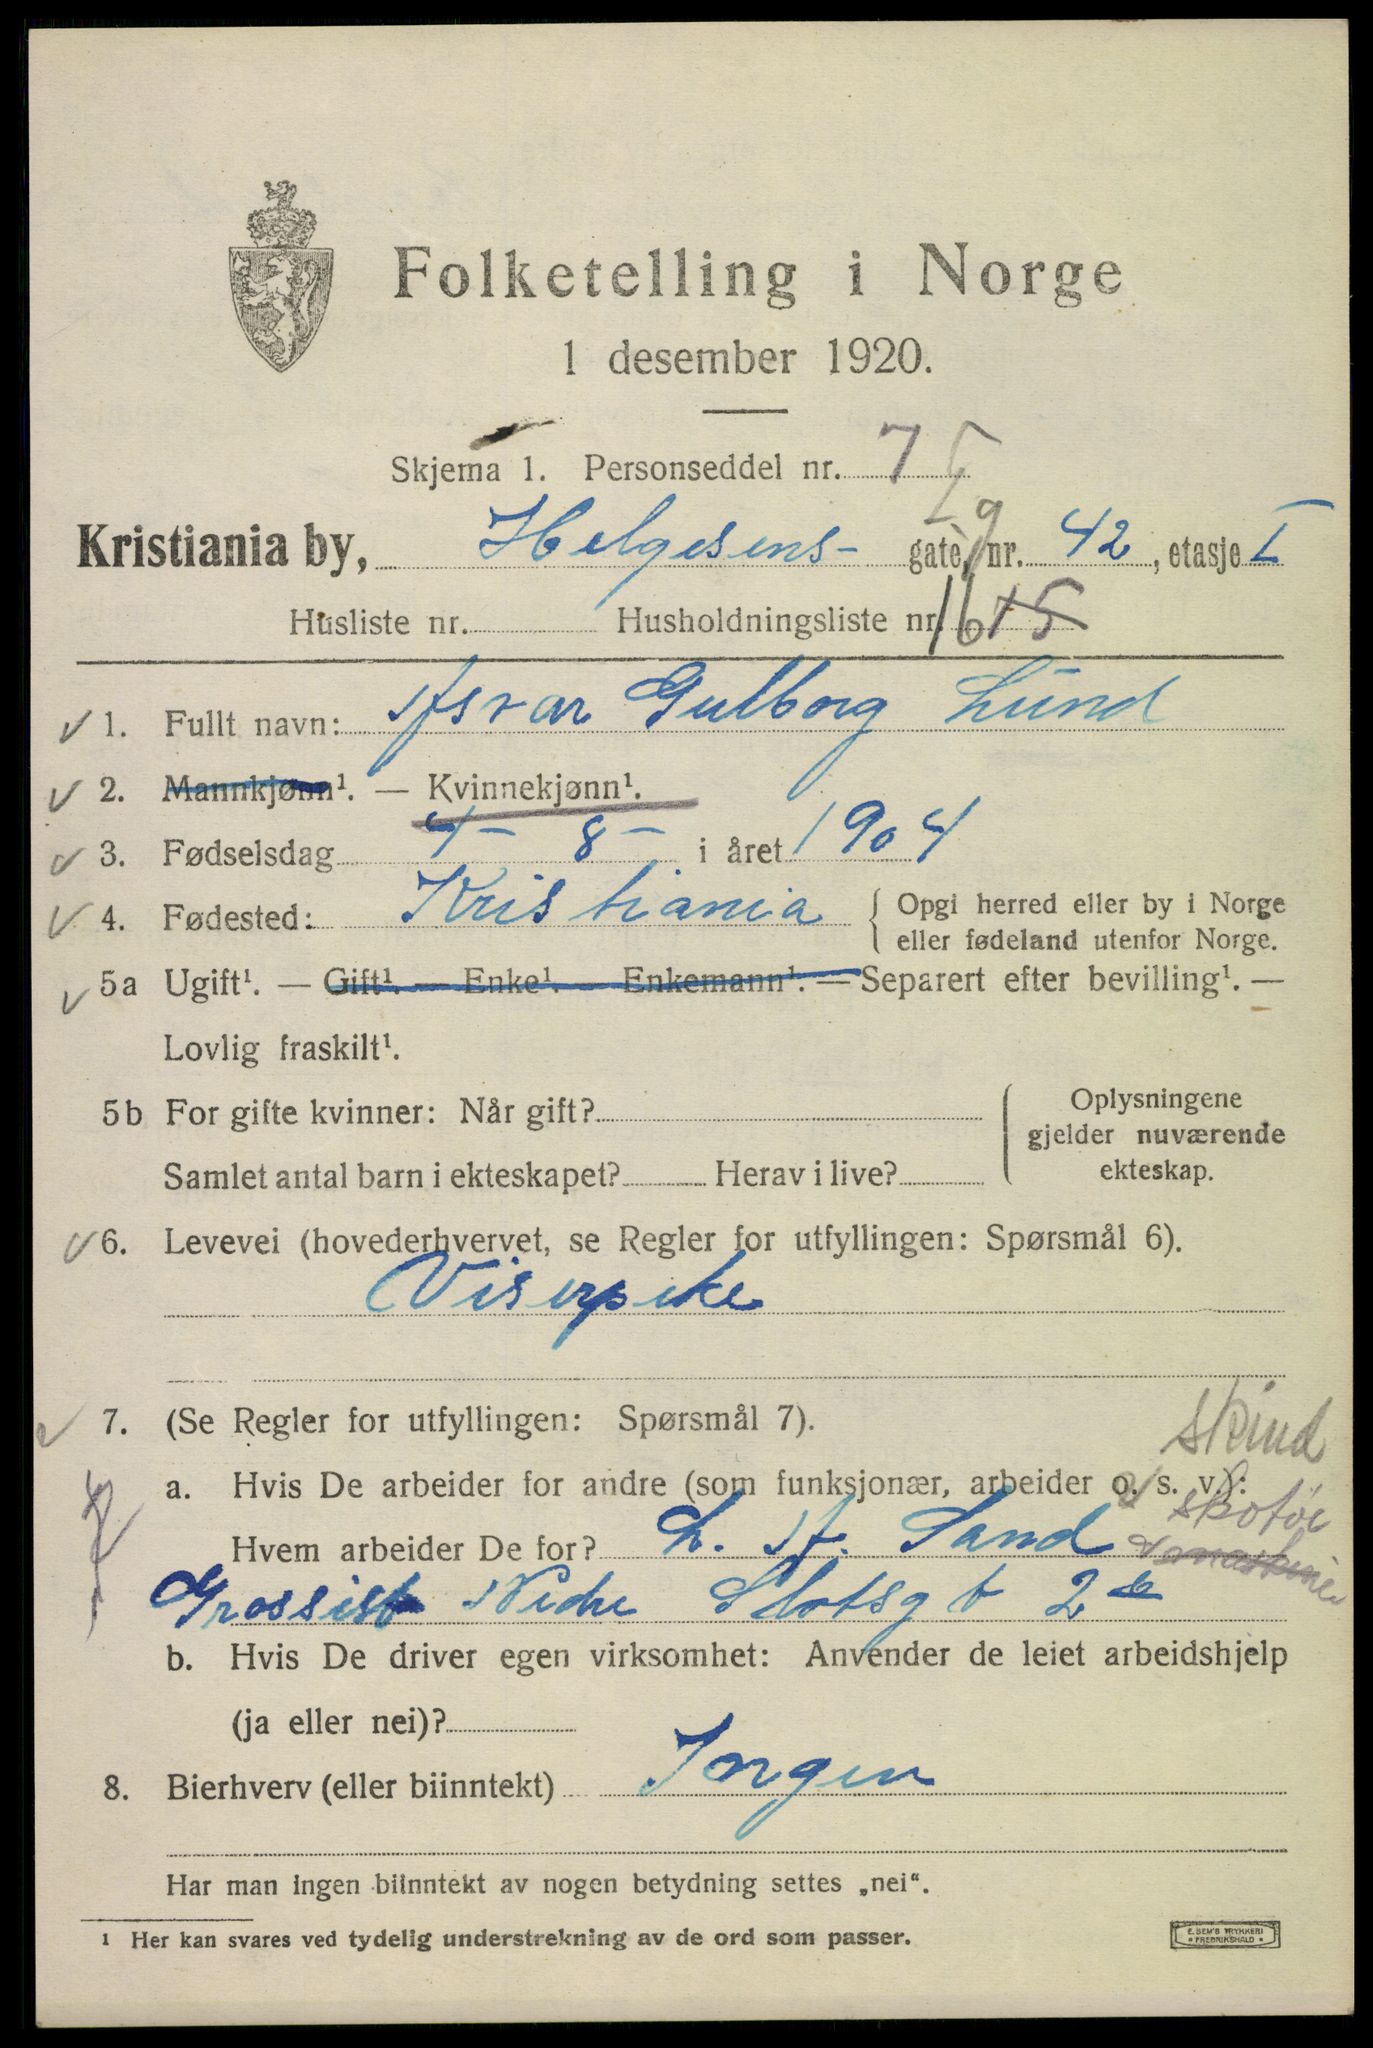 Folketelling i Norge
1 desember 1920.
Skjema 1. Personseddel nr. 7
Kristiania by, Helgesens- gate, nr. 42, etasje I
Husliste nr. Husholdningsliste nr. 16 15
1. Fullt navn: Asvar Gulborg Lund
2. Mannkjønn¹. — Kvinnekjønn¹.
3. Fødselsdag 4 - 8 - i året 1904
4. Fødested: Kristiania { Opgi herred eller by i Norge
eller fødeland utenfor Norge.
5a Ugift¹. — Gift¹. — Enke¹. — Enkemann¹. — Separert efter bevilling¹. —
Lovlig fraskilt¹.
5b For gifte kvinner: Når gift?
Samlet antal barn i ekteskapet? Herav i live?
Oplysningene
gjelder nuværende
ekteskap.
6. Levevei (hovederhvervet, se Regler for utfyllingen: Spørsmål 6).
Viserpike
7. (Se Regler for utfyllingen: Spørsmål 7).
skind
a. Hvis De arbeider for andre (som funksjonær, arbeider o. s. v.):
skotøi
Hvem arbeider De for? L. A. Sand
Grossist Nedre Slotsgt 2
b. Hvis De driver egen virksomhet: Anvender de leiet arbeidshjelp
(ja eller nei)?
8. Bierhverv (eller biinntekt) Ingen
Har man ingen biinntekt av nogen betydning settes „nei“.
1 Her kan svares ved tydelig understrekning av de ord som passer.
E. SEM'S TRYKKERI
• FREDRIKSHALD •